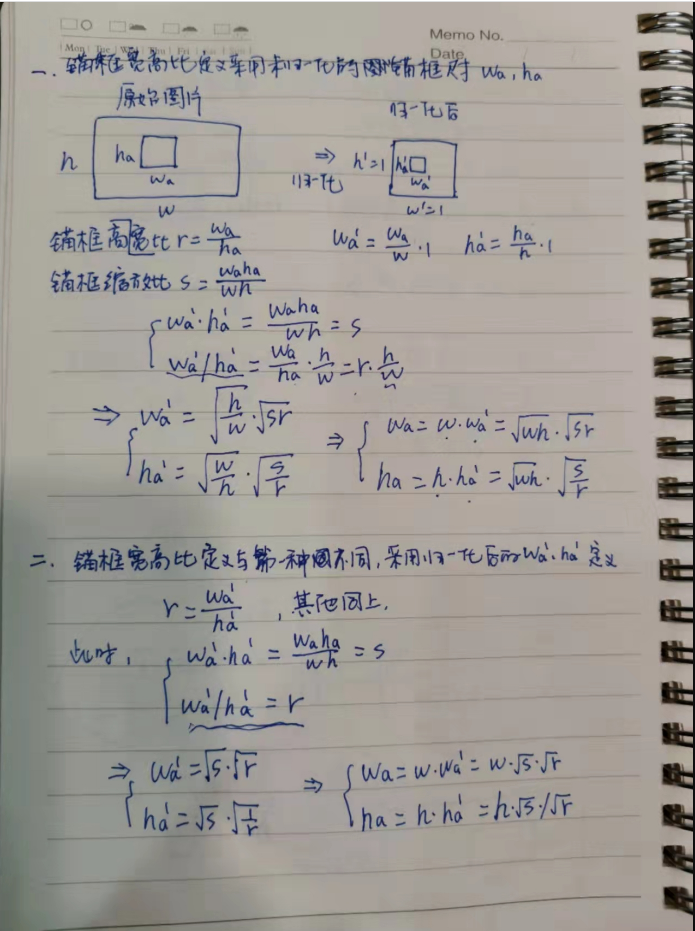 Memo No.
Mon Tue Wed Thu Fri Sat Sun
Date
一、锚框宽高比定义采用未归一化的锚框尺寸 wa, ha
原始图片
归一化后
h ha wa w
⇒ 归一化
h'=1 ha' wa' w'=1
锚框高宽比 r = wa/ha
wa' = wa/w · 1 ha' = ha/h · 1
锚框缩放比 s = waha/wh
{ wa'·ha' = waha/wh = s
wa'/ha' = wa/ha · h/w = r · h/w
⇒ { wa' = √(h/w) · √sr
ha' = √(w/h) · √(s/r)
⇒ { wa = w·wa' = √wh · √sr
ha = h·ha' = √wh · √(s/r)
二、锚框宽高比定义与第一种不同,采用归一化后的 wa'·ha' 定义
r = wa'/ha' ,其他同上.
此时, { wa'·ha' = waha/wh = s
wa'/ha' = r
⇒ { wa' = √s·√r
ha' = √s·√(1/r)
⇒ { wa = w·wa' = w·√s·√r
ha = h·ha' = h·√s/√r